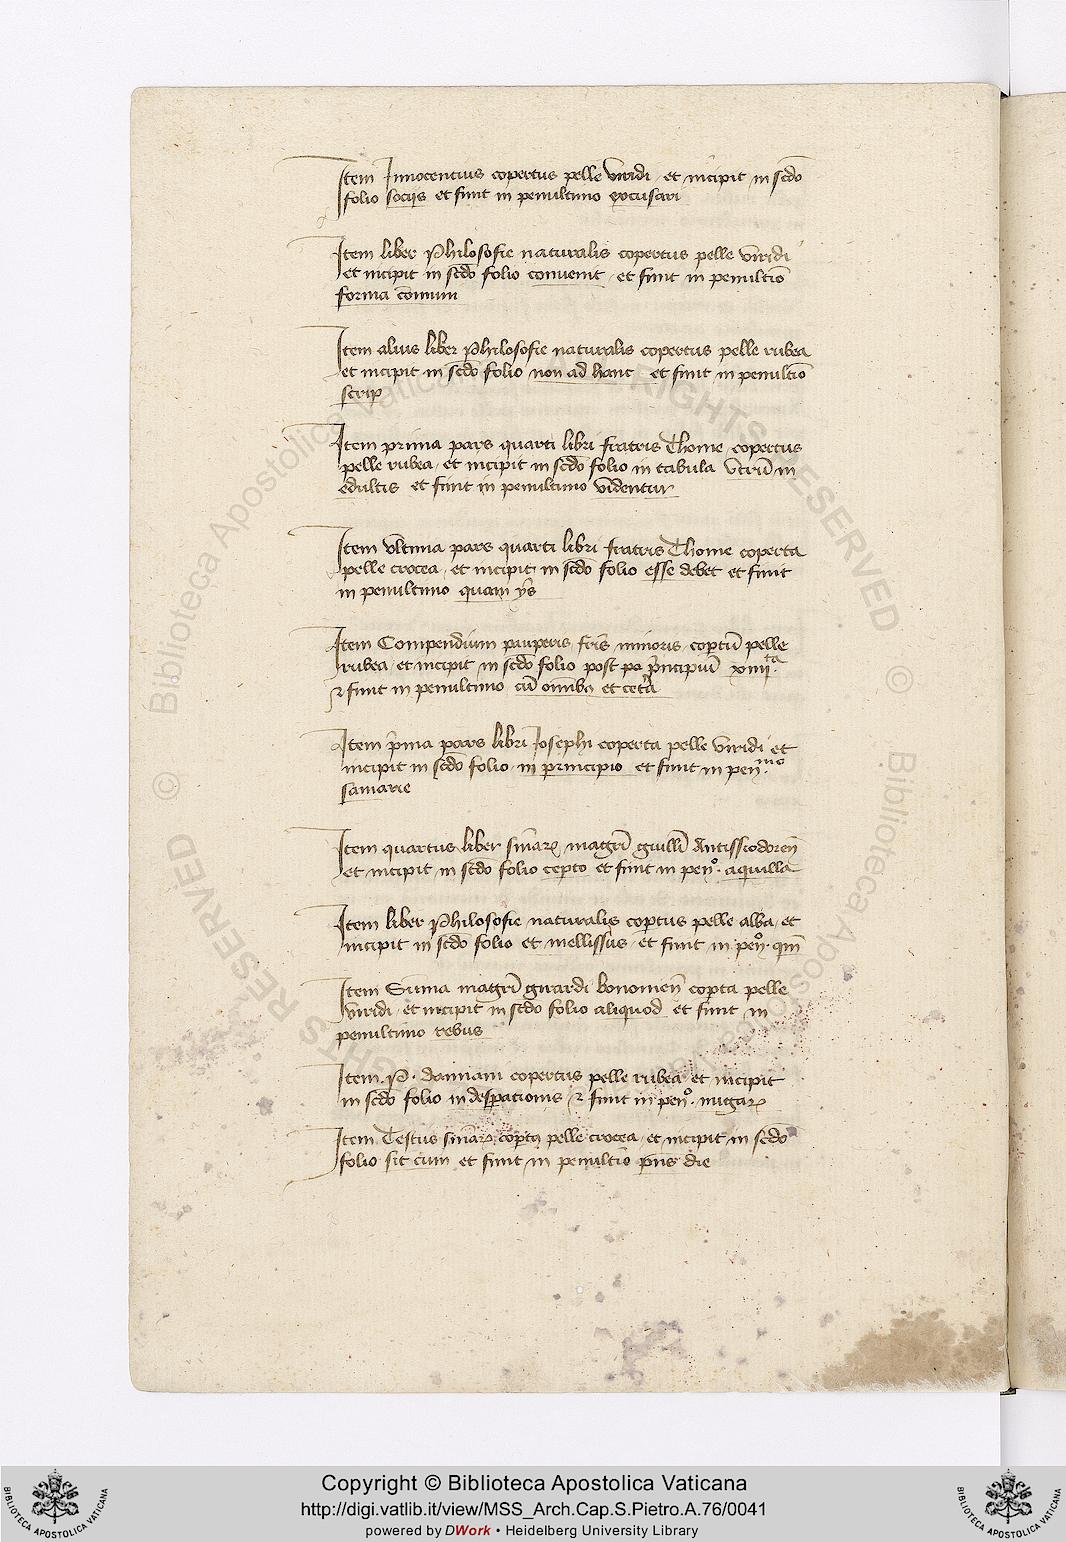 Item Innocencius copertus pelle viridi et incipit in scdo
folio sociis et finit in penultimo excusari
Item liber Philosofie naturalis copertus pelle viridi
et incipit in scdo folio convenit et finit in penultio
forma comun
Item alius liber Philosofie naturalis copertus pelle rubea
et incipit in scdo folio non ad hanc et finit in penultio
scrip
Item prima pars quarti libri fratris Thome copertus
pelle rubea et incipit in scdo folio in tabula utru in
edultis et finit in penultimo videntur
Item ultima pars quarti libri fratris Thome coperta
pelle crocea et incipit in scdo folio esse debet et finit
in penultimo quam
Item Compendium pauperis fris minoris coptu pelle
rubea et incipit in scdo folio post principiu xiiii ta
et finit in penultimo cu omnibus et cetera
Item pma pars libri Josephi coperta pelle viridi et
incipit in scdo folio in principio et finit in pen mo
samarie
Item quartus liber smaru magri guilli Antissiodoren
et incipit in scdo folio cepto et finit in peno. aquilla
Item liber Philosofie naturalis coptus pelle alba et
incipit in scdo folio et mellissus et finit in peno. qm
Item Suma magri girardi bonomen copta pelle
viridi et incipit in scdo folio aliquod et finit in
penultimo rebus
Item .P. damiani copertus pelle rubea et incipit
in scdo folio in desperationis et finit in peno. nugaru
Item Testus smaru coptus pelle crocea et incipit in scdo
folio sit cum et finit in penultio pns die
© Biblioteca Apostolica Vaticana ALL RIGHTS RESERVED
© Biblioteca Apostolica Vaticana ALL RIGHTS RESERVED
BIBLIOTECA APOSTOLICA VATICANA
Copyright © Biblioteca Apostolica Vaticana
http://digi.vatlib.it/view/MSS_Arch.Cap.S.Pietro.A.76/0041
powered by DWork • Heidelberg University Library
BIBLIOTECA APOSTOLICA VATICANA